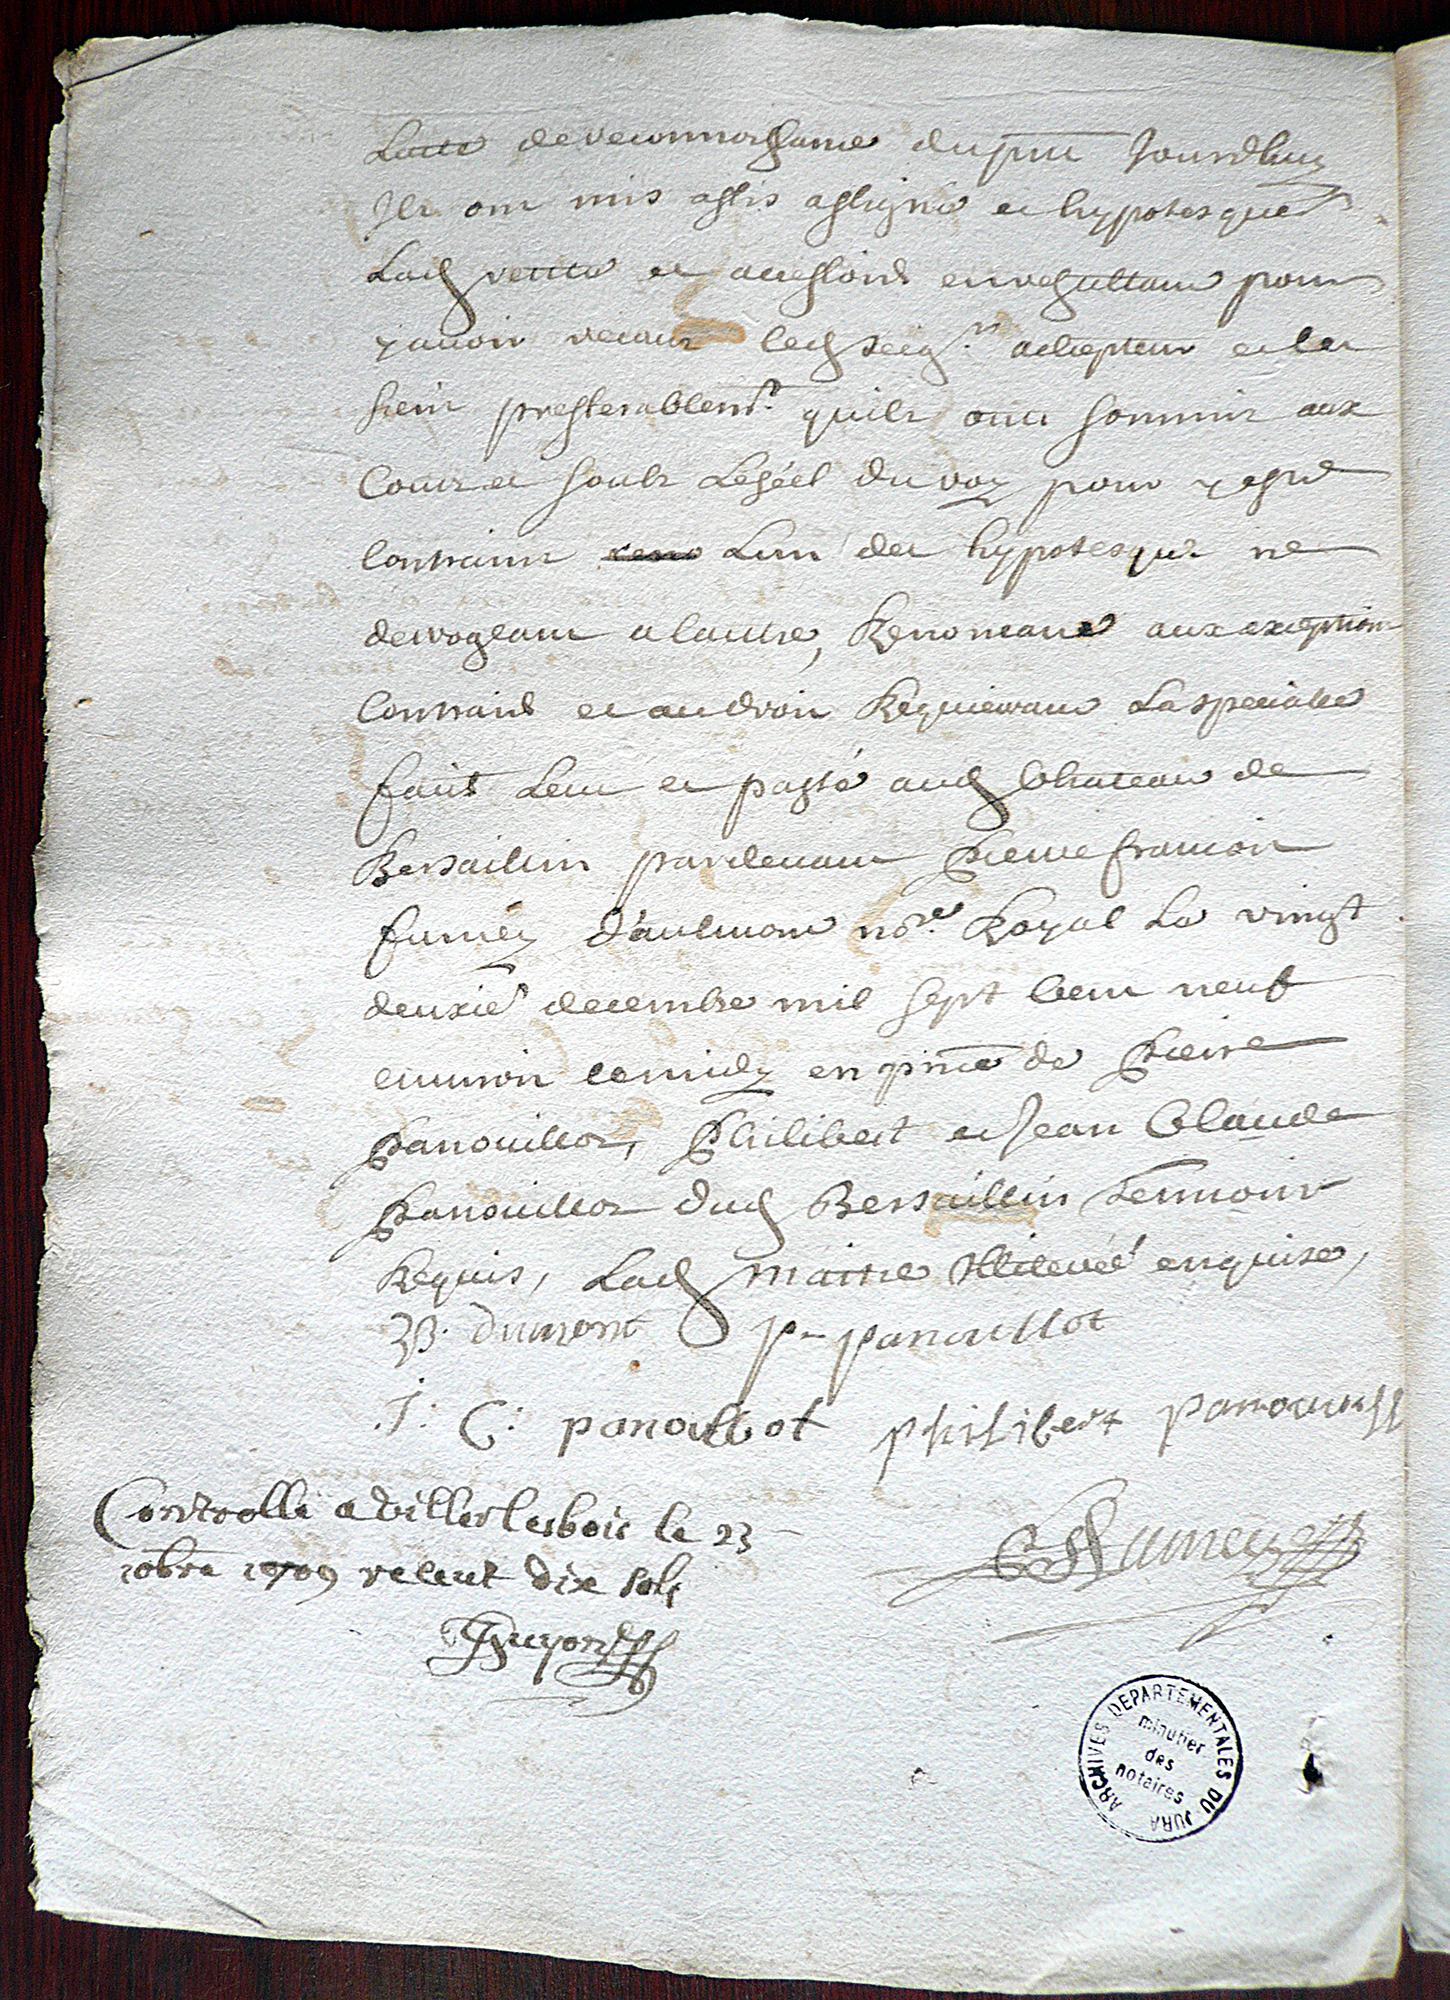 Lacte de reconnoissance du pnt Jourdhuy
Ils ont mis assis assigné et hypotesqué
Lad vente et accessions en resultant pour
y avoir recour led seigr achepteur et les
siens presferablemt quils ont soumis aux
Cours et soubs Le séel du roy pour y estre
Contraint Lun des hypotesque ne
derrogeant a lautre, Renonceant aux exceptions
Contraires et au droit Requierrant La speciallité
fait Leu et passé aud Chateau de
Bersaillin pardevant Pierre francois
fumey d'aulmont nore Royal Le vingt
deuxie decembre mil sept Cent neuf
environ le midy en pnce de Pierre
Panouillot, Philibert et Jean Claude
Panouillot dud Bersaillin Temoins
Requis, Lad maitre enquise,
B. dumont P panouillot
J: C: panouillot philibert panouillot
Controllé a Villerslesbois le 23
10bre 1709 receut dix sols
Guyon
Fumey
ARCHIVES DEPARTEMENTALES DU JURA
minutier
des
notaires